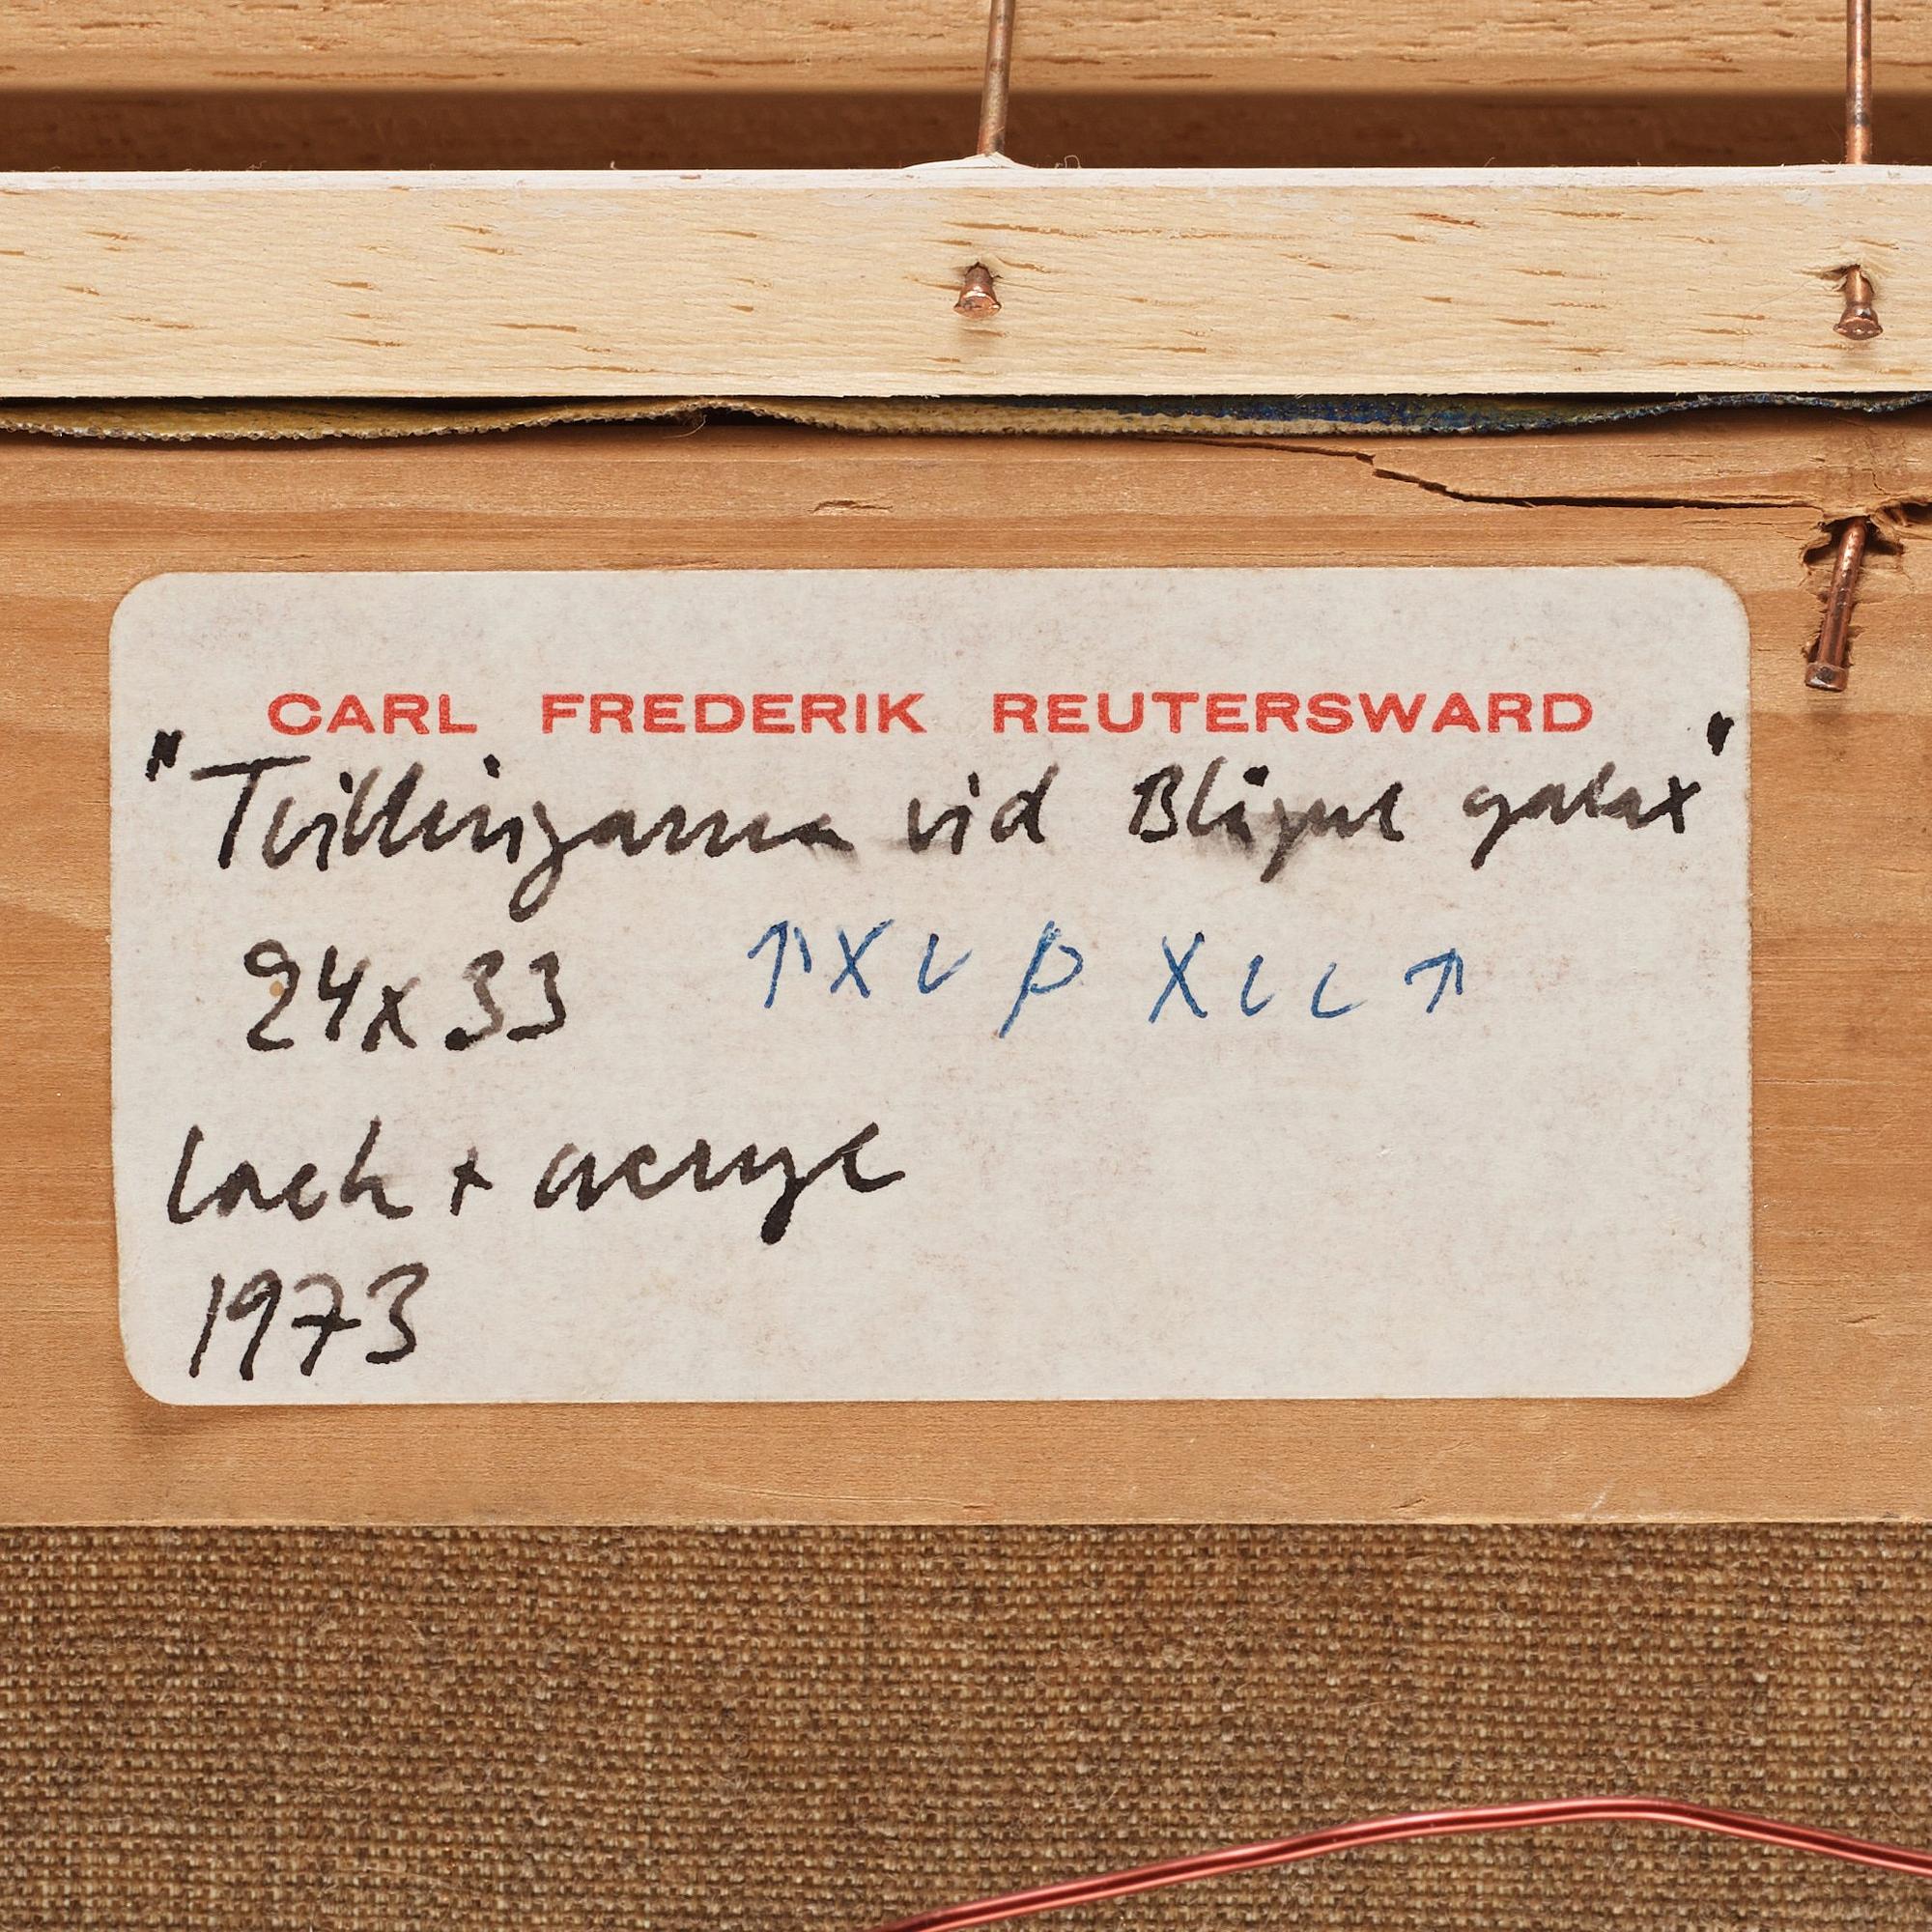 CARL FREDERIK REUTERSWARD
"Tvillingarna vid Blågul galax"
24x33 ↑XLPXLL↑
lack + acryl
1973